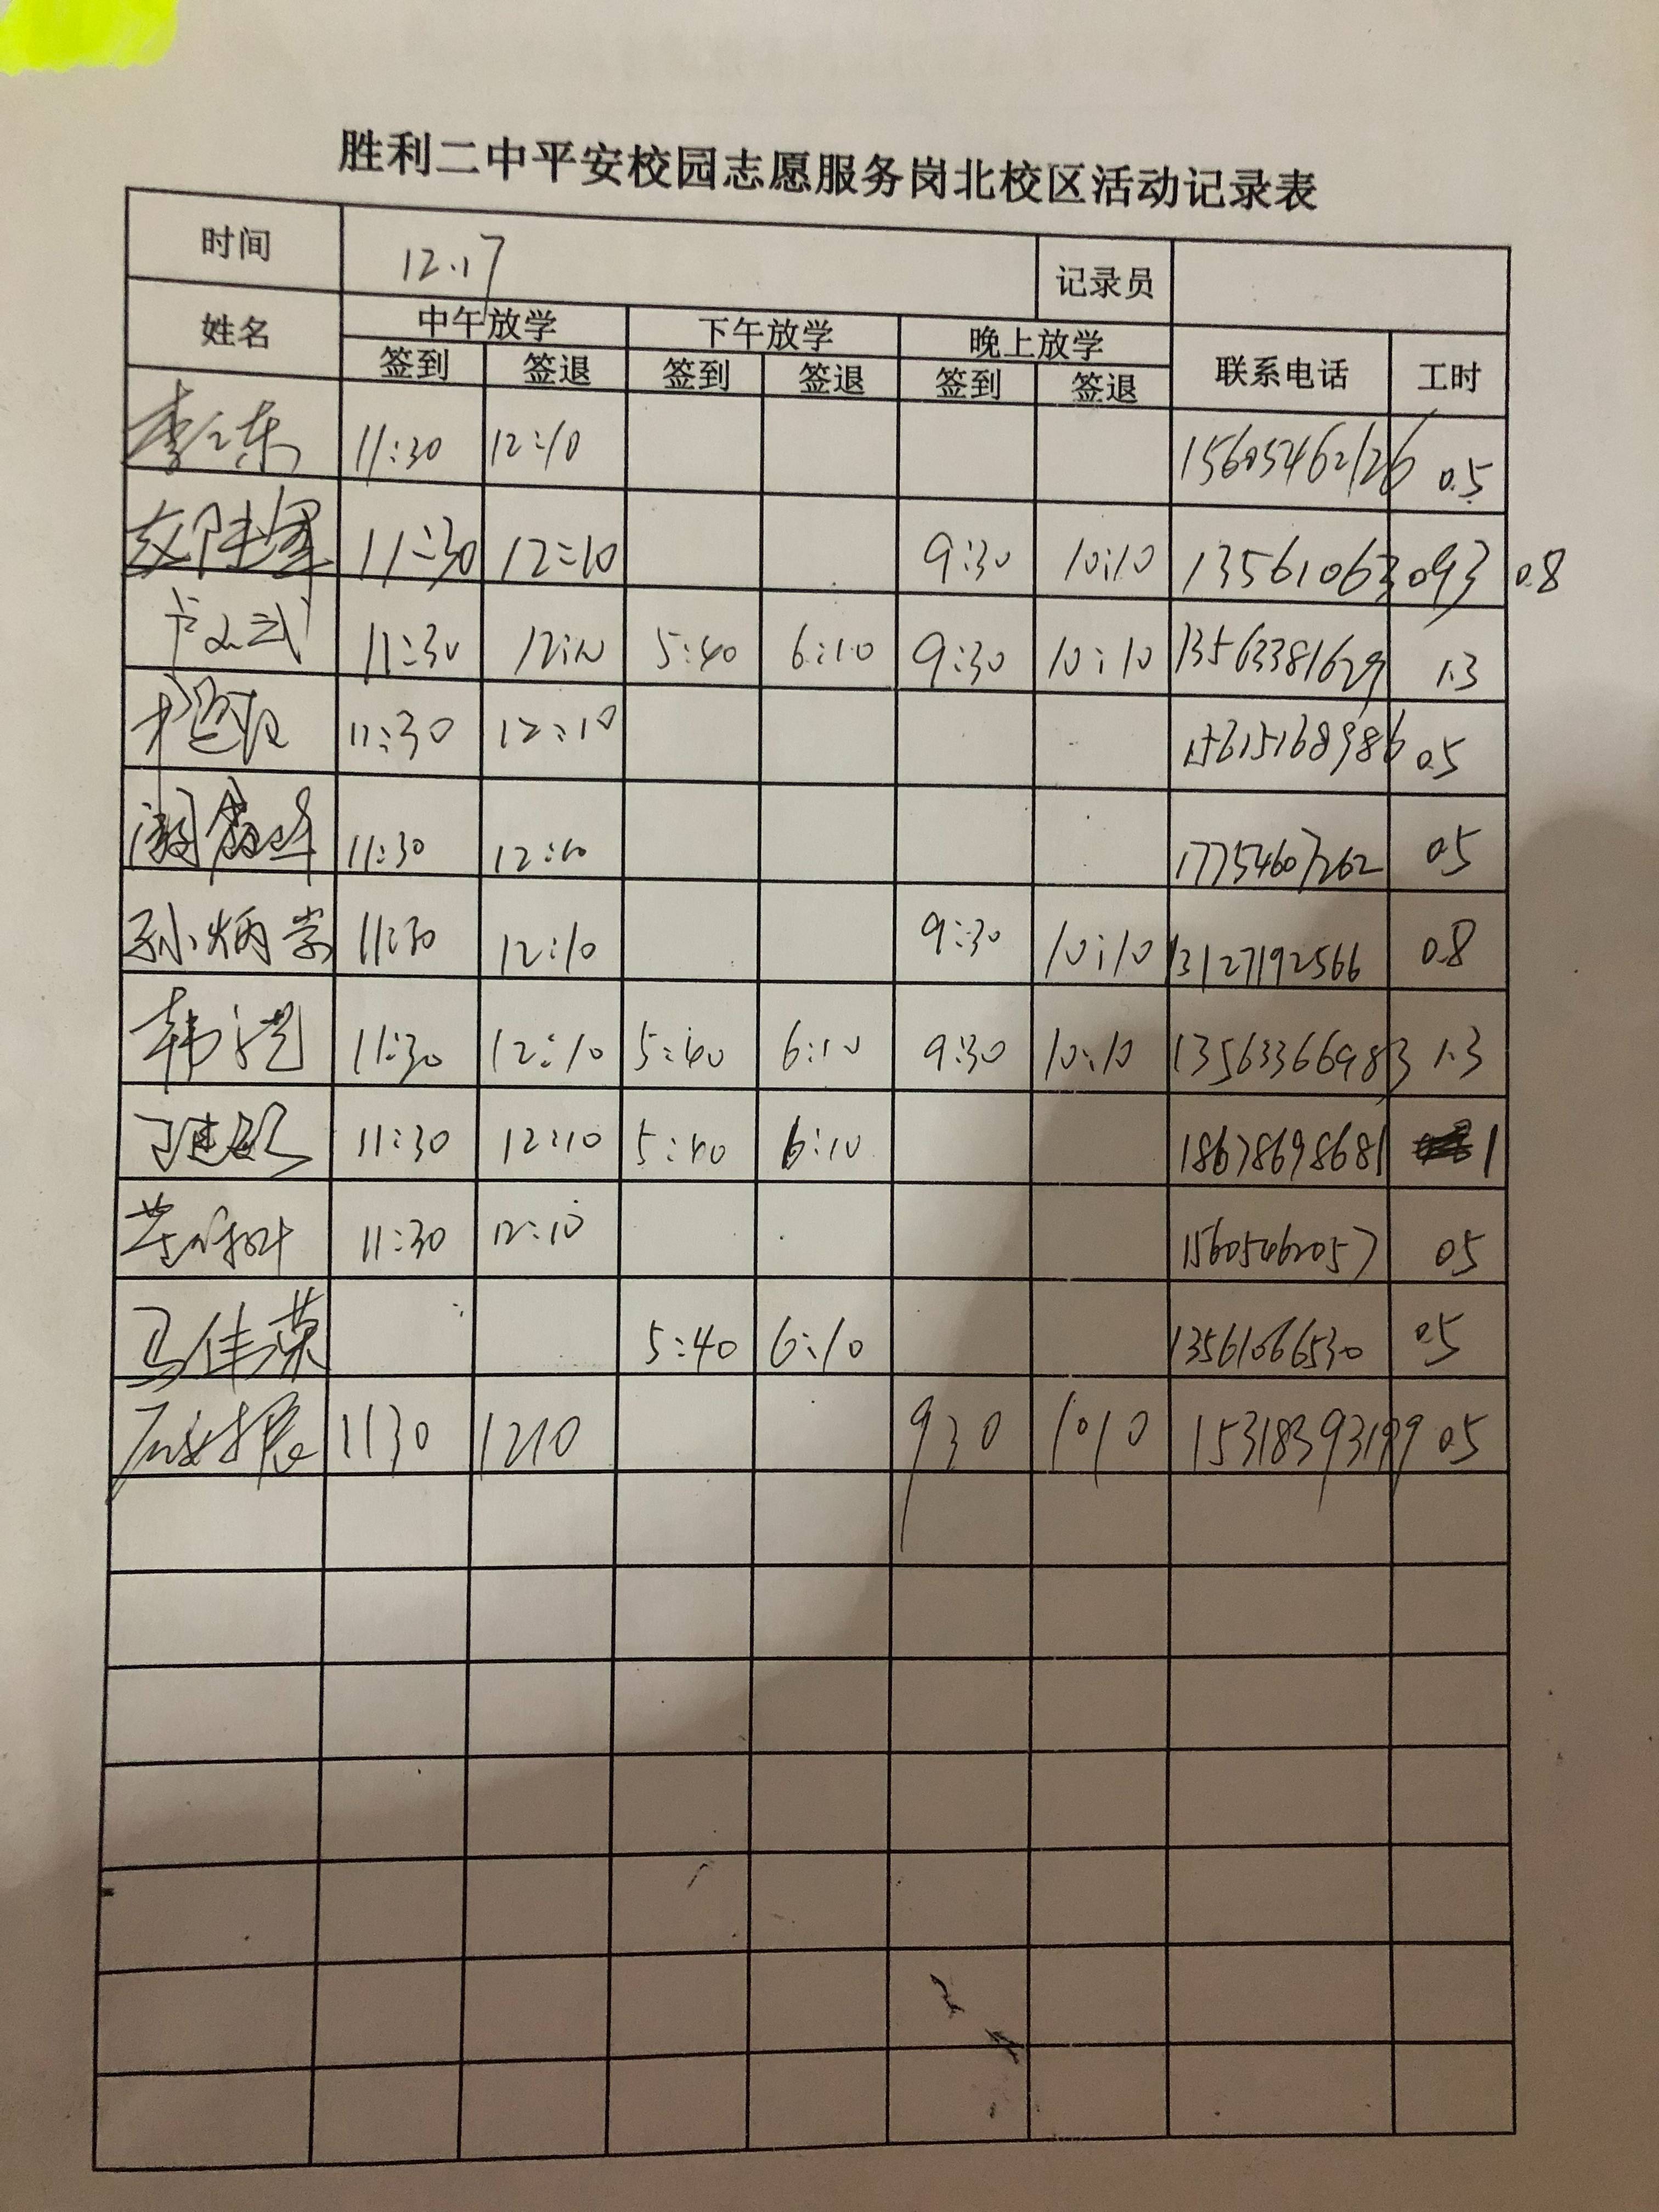 胜利二中平安校园志愿服务岗北校区活动记录表
时间 12.17 记录员
姓名 中午放学 下午放学 晚上放学 联系电话 工时
签到 签退 签到 签退 签到 签退
11:30 12:10 15605462126 0.5
11:30 12:10 9:30 10:10 13561063093 0.8
11:30 12:10 5:40 6:10 9:30 10:10 13563381629 1.3
11:30 12:10 15615168986 0.5
11:30 12:10 17754607262 0.5
孙炳崇 11:30 12:10 9:30 10:10 13127192566 0.8
11:30 12:10 5:40 6:10 9:30 10:10 13563366983 1.3
11:30 12:10 5:40 6:10 18678698681 1
11:30 12:10 15605462057 0.5
马佳荣 5:40 6:10 13561066530 0.5
1130 1210 930 1010 15318393199 0.5